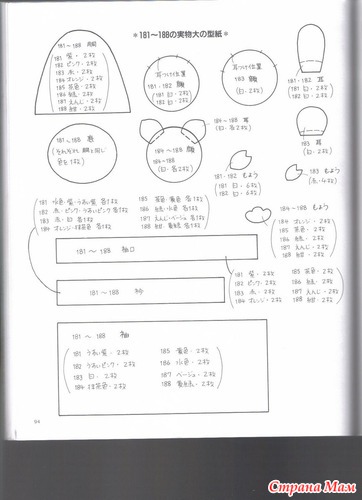 ＊181〜188の実物大の型紙＊
181〜188 胴
181 紫・2枚
182 ピンク・2枚
183 赤・2枚
184 オレンジ・2枚
185 茶色・2枚
186 紺・2枚
187 えんじ・2枚
188 紺・2枚
耳つけ位置
181・182 顔
181 白・2枚
182 白・2枚
耳つけ位置
183 顔
(白・2枚)
181・182 耳
181 白・2枚
182 白・2枚
181〜188 巻
(それぞれ胴と同じ色を1枚)
184〜188 耳
(白・各2枚)
184〜188 顔
184〜188
(白・各2枚)
183 耳
(白・2枚)
181・182 もよう
181 白・6枚
182 白・6枚
183 もよう
(赤・4枚)
181 水色・紫・うすい紫 各1枚
182 赤・ピンク・うすいピンク 各1枚
183 赤・白 各1枚
184 オレンジ・抹茶色 各1枚
185 茶色・黄色 各1枚
186 紺・水色 各1枚
187 えんじ・ベージュ 各1枚
188 紺・黄緑 各1枚
184〜188 もよう
184 オレンジ・2枚
185 茶色・2枚
186 紺・2枚
187 えんじ・2枚
188 紺・2枚
181〜188 袖口
181〜188 衿
181 紫・2枚
182 ピンク・2枚
183 赤・2枚
184 オレンジ・2枚
185 茶色・2枚
186 紺・2枚
187 えんじ・2枚
188 紺・2枚
181〜188 袖
181 うすい紫・2枚
182 うすいピンク・2枚
183 白・2枚
184 抹茶色・2枚
185 黄色・2枚
186 水色・2枚
187 ベージュ・2枚
188 黄緑・2枚
94
Страна Мам